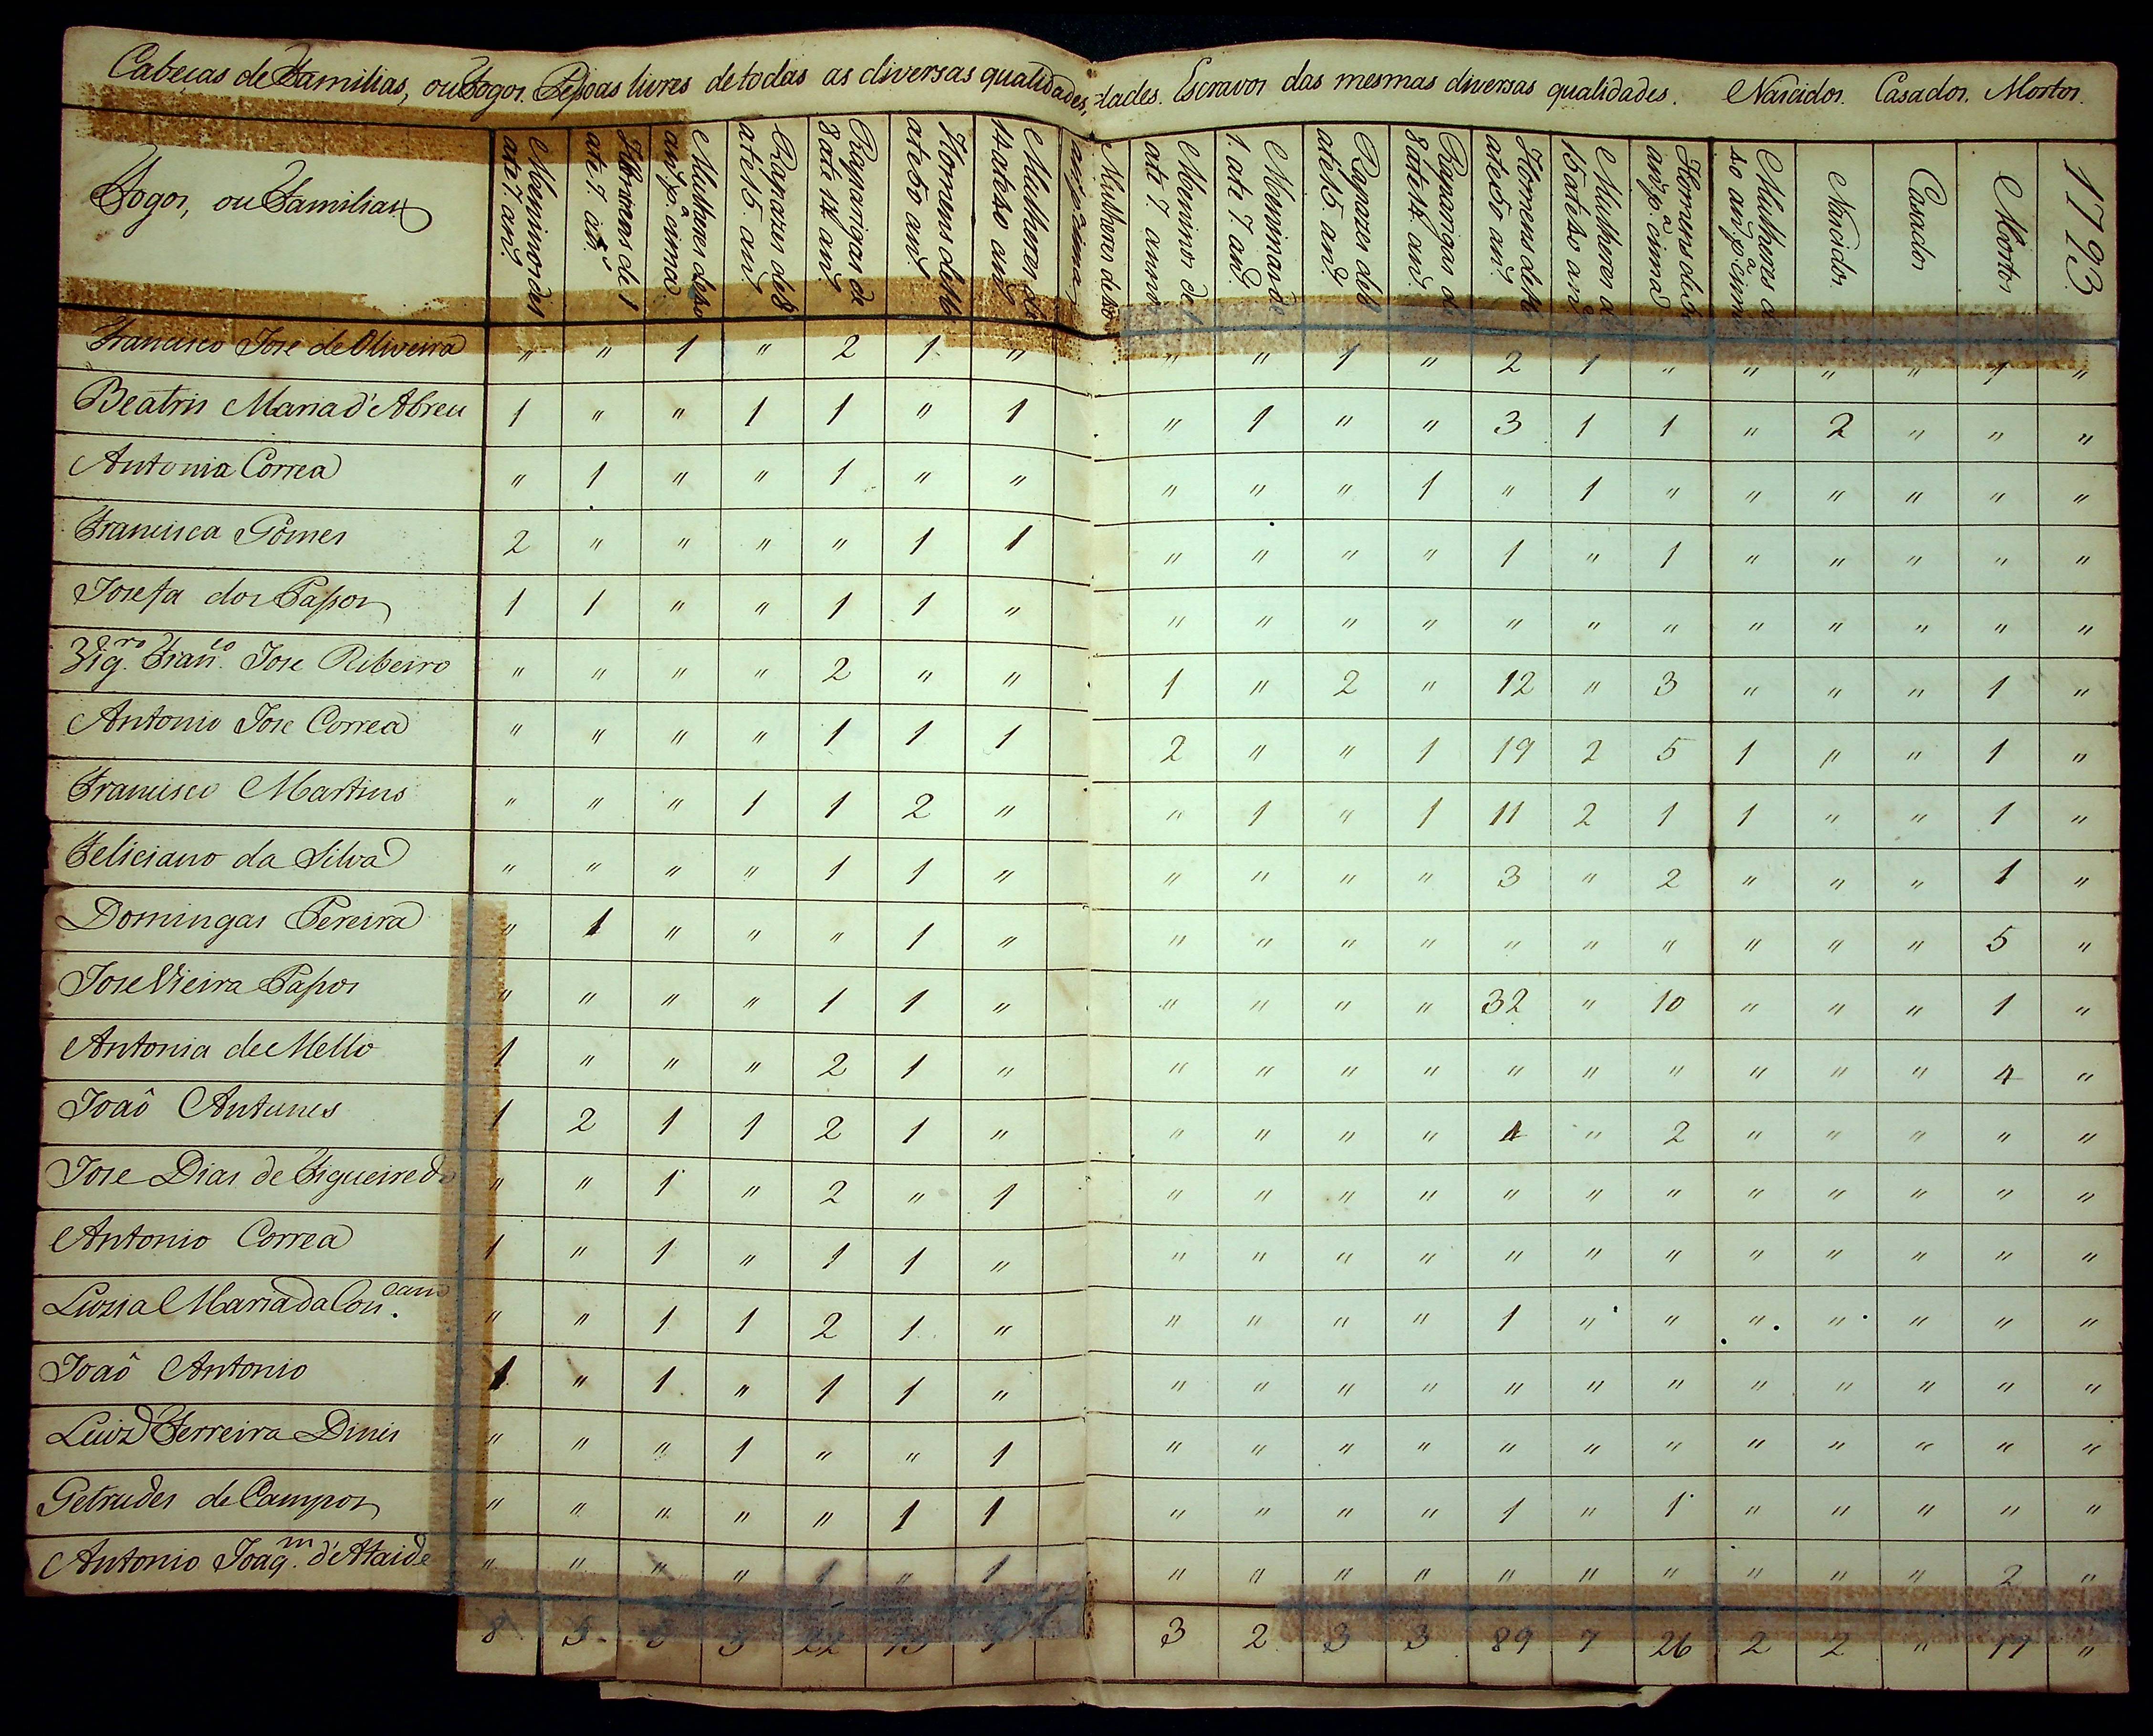 Cabeças de Familias, ou Fogos. Pessoas livres de todas as diversas qualidades. Escravos das mesmas diversas qualidades. Nascidos. Casados. Mortos.
Fogos, ou Familias
Meninos de 1 ate 7. an.ˢ
de 1 ate 7. an.ˢ
Mulheres de 50 an.ˢ p.ᵃ cima
Rapazes de 8 ate 15. an.ˢ
Raparigas de 8 ate 14. an.ˢ
Homens de 16 ate 50 an.ˢ
Mulheres de 14 ate 50 an.ˢ
Mulheres de 50
Meninos de 1 ate 7. annos
Meninas de 1. ate 7. an.ˢ
Rapazes de 8 ate 15. an.ˢ
Raparigas de 8 ate 14. an.ˢ
Homens de 16 ate 50 an.ˢ
Mulheres de 15 ate 50 an.ˢ
Homens de 50 an.ˢ p.ᵃ cima
Mulheres de 50 an.ˢ p.ᵃ cima
Nascidos.
Casados
Mortos
1793.
Francisco Jose de Oliveira " " 1 " 2 1 " " " 1 " 2 1 " " " " 1 "
Beatris Maria d'Abreu 1 " " 1 1 " 1 " 1 " " 3 1 1 " 2 " " "
Antonia Correa " 1 " " 1 " " " " " 1 " 1 " " " " " "
Francisca Gomes 2 " " " " 1 1 " " " " 1 " 1 " " " " "
Josefa dos Passos 1 1 " " 1 1 " " " " " " " " " " " " "
Vig.ʳᵒ Fran.ᶜᵒ Jose Ribeiro " " " " 2 " " 1 " 2 " 12 " 3 " " " 1 "
Antonio Jose Correa " " " " 1 1 1 2 " " 1 19 2 5 1 " " 1 "
Francisco Martins " " " 1 1 2 " " 1 " 1 11 2 1 1 " " 1 "
Feliciano da Silva " " " " 1 1 " " " " " 3 " 2 " " " 1 "
Domingas Pereira " 1 " " " 1 " " " " " " " " " " " 5 "
Jose Vieira Passos " " " " 1 1 " " " " " 32 " 10 " " " 1 "
Antonia de Mello 1 " " " 2 1 " " " " " " " " " " " 4 "
Joaô Antunes 1 2 1 1 2 1 " " " " " 4 " 2 " " " " "
Jose Dias de Figueiredo " " 1 " 2 " 1 " " " " " " " " " " " "
Antonio Correa 1 " 1 " 1 1 " " " " " " " " " " " " "
Luzia Maria da Con.ᶜᵃᵐ " " 1 1 2 1 " " " " " 1 " " " " " " "
Joaô Antonio 1 " 1 " 1 1 " " " " " " " " " " " " "
Luiz Ferreira Dinis " " " 1 " " 1 " " " " " " " " " " " "
Getrudes de Campos " " " " " 1 1 " " " " 1 " 1 " " " " "
Antonio Joaq.ᵐ d'Ataide " " " " 1 " 1 " " " " " " " " " " 2 "
8 5 3 22 3 2 3 3 89 7 26 2 2 " 17 "